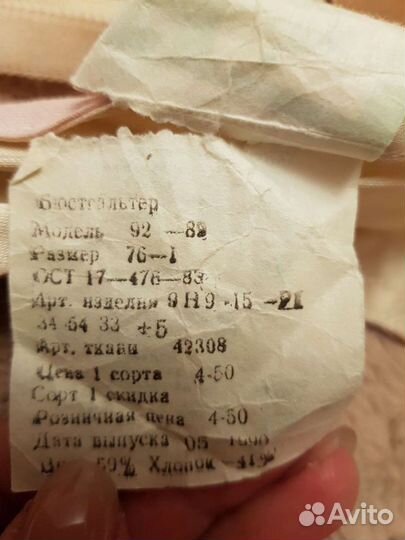 Бюстгальтер
Модель 92 —89
Размер 76—1
ОСТ 17—476—83
Арт. изделия 9Н9-15 —21
34 54 33 +5
Арт. ткани 42308
Цена 1 сорта 4-50
Сорт 1 скидка
Розничная цена 4-50
Дата выпуска 05
50% Хлопок
Avito